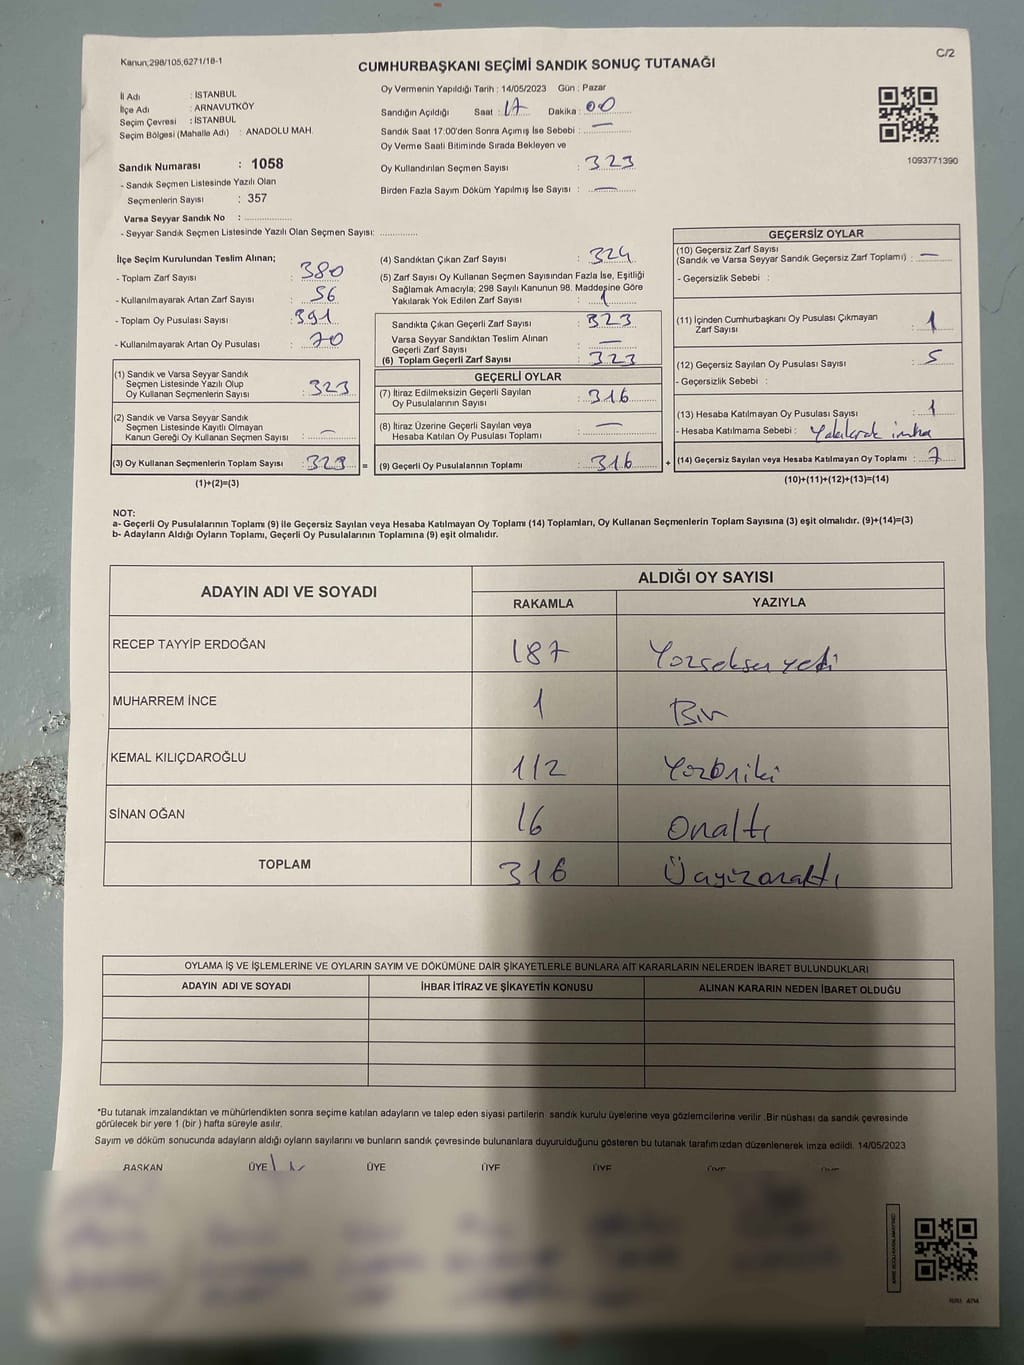 Kanun;298/105;6271/18-1
C/2
CUMHURBAŞKANI SEÇİMİ SANDIK SONUÇ TUTANAĞI
İl Adı : İSTANBUL
İlçe Adı : ARNAVUTKÖY
Seçim Çevresi : İSTANBUL
Seçim Bölgesi (Mahalle Adı) : ANADOLU MAH.
Oy Vermenin Yapıldığı Tarih : 14/05/2023 Gün : Pazar
Sandığın Açıldığı Saat : 17 Dakika : 00
Sandık Saat 17:00'den Sonra Açımış İse Sebebi : —
Oy Verme Saati Bitiminde Sırada Bekleyen ve
Oy Kullandırılan Seçmen Sayısı : 323
Birden Fazla Sayım Döküm Yapılmış İse Sayısı : —
1093771390
Sandık Numarası : 1058
- Sandık Seçmen Listesinde Yazılı Olan
Seçmenlerin Sayısı : 357
Varsa Seyyar Sandık No :
- Seyyar Sandık Seçmen Listesinde Yazılı Olan Seçmen Sayısı:
İlçe Seçim Kurulundan Teslim Alınan;
- Toplam Zarf Sayısı : 380
- Kullanılmayarak Artan Zarf Sayısı : 56
- Toplam Oy Pusulası Sayısı : 391
- Kullanılmayarak Artan Oy Pusulası : 70
(1) Sandık ve Varsa Seyyar Sandık
Seçmen Listesinde Yazılı Olup
Oy Kullanan Seçmenlerin Sayısı : 323
(2) Sandık ve Varsa Seyyar Sandık
Seçmen Listesinde Kayıtlı Olmayan
Kanun Gereği Oy Kullanan Seçmen Sayısı : —
(3) Oy Kullanan Seçmenlerin Toplam Sayısı : 323 =
(1)+(2)=(3)
(4) Sandıktan Çıkan Zarf Sayısı : 324
(5) Zarf Sayısı Oy Kullanan Seçmen Sayısından Fazla İse, Eşitliği
Sağlamak Amacıyla; 298 Sayılı Kanunun 98. Maddesine Göre
Yakılarak Yok Edilen Zarf Sayısı : 1
Sandıkta Çıkan Geçerli Zarf Sayısı : 323
Varsa Seyyar Sandıktan Teslim Alınan
Geçerli Zarf Sayısı : —
(6) Toplam Geçerli Zarf Sayısı : 323
GEÇERLİ OYLAR
(7) İtiraz Edilmeksizin Geçerli Sayılan
Oy Pusulalarının Sayısı : 316
(8) İtiraz Üzerine Geçerli Sayılan veya
Hesaba Katılan Oy Pusulası Toplamı : —
(9) Geçerli Oy Pusulalarının Toplamı : 316 +
GEÇERSİZ OYLAR
(10) Geçersiz Zarf Sayısı
(Sandık ve Varsa Seyyar Sandık Geçersiz Zarf Toplamı) : —
- Geçersizlik Sebebi :
(11) İçinden Cumhurbaşkanı Oy Pusulası Çıkmayan
Zarf Sayısı : 1
(12) Geçersiz Sayılan Oy Pusulası Sayısı : 5
- Geçersizlik Sebebi :
(13) Hesaba Katılmayan Oy Pusulası Sayısı : 1
- Hesaba Katılmama Sebebi : Yakılarak imha
(14) Geçersiz Sayılan veya Hesaba Katılmayan Oy Toplamı : 7
(10)+(11)+(12)+(13)=(14)
NOT:
a- Geçerli Oy Pusulalarının Toplamı (9) ile Geçersiz Sayılan veya Hesaba Katılmayan Oy Toplamı (14) Toplamları, Oy Kullanan Seçmenlerin Toplam Sayısına (3) eşit olmalıdır. (9)+(14)=(3)
b- Adayların Aldığı Oyların Toplamı, Geçerli Oy Pusulalarının Toplamına (9) eşit olmalıdır.
ADAYIN ADI VE SOYADI
ALDIĞI OY SAYISI
RAKAMLA YAZIYLA
RECEP TAYYİP ERDOĞAN 187 Yüzseksen yedi
MUHARREM İNCE 1 Bir
KEMAL KILIÇDAROĞLU 112 Yüzoniki
SİNAN OĞAN 16 Onaltı
TOPLAM 316 Üçyüzonaltı
OYLAMA İŞ VE İŞLEMLERİNE VE OYLARIN SAYIM VE DÖKÜMÜNE DAİR ŞİKAYETLERLE BUNLARA AİT KARARLARIN NELERDEN İBARET BULUNDUKLARI
ADAYIN ADI VE SOYADI İHBAR İTİRAZ VE ŞİKAYETİN KONUSU ALINAN KARARIN NEDEN İBARET OLDUĞU
*Bu tutanak imzalandıktan ve mühürlendikten sonra seçime katılan adayların ve talep eden siyasi partilerin sandık kurulu üyelerine veya gözlemcilerine verilir .Bir nüshası da sandık çevresinde
görülecek bir yere 1 (bir ) hafta süreyle asılır.
Sayım ve döküm sonucunda adayların aldığı oyların sayılarını ve bunların sandık çevresinde bulunanlara duyurulduğunu gösteren bu tutanak tarafımızdan düzenlenerek imza edildi. 14/05/2023
BAŞKAN ÜYE ÜYE ÜYE ÜYE ÜYE ÜYE